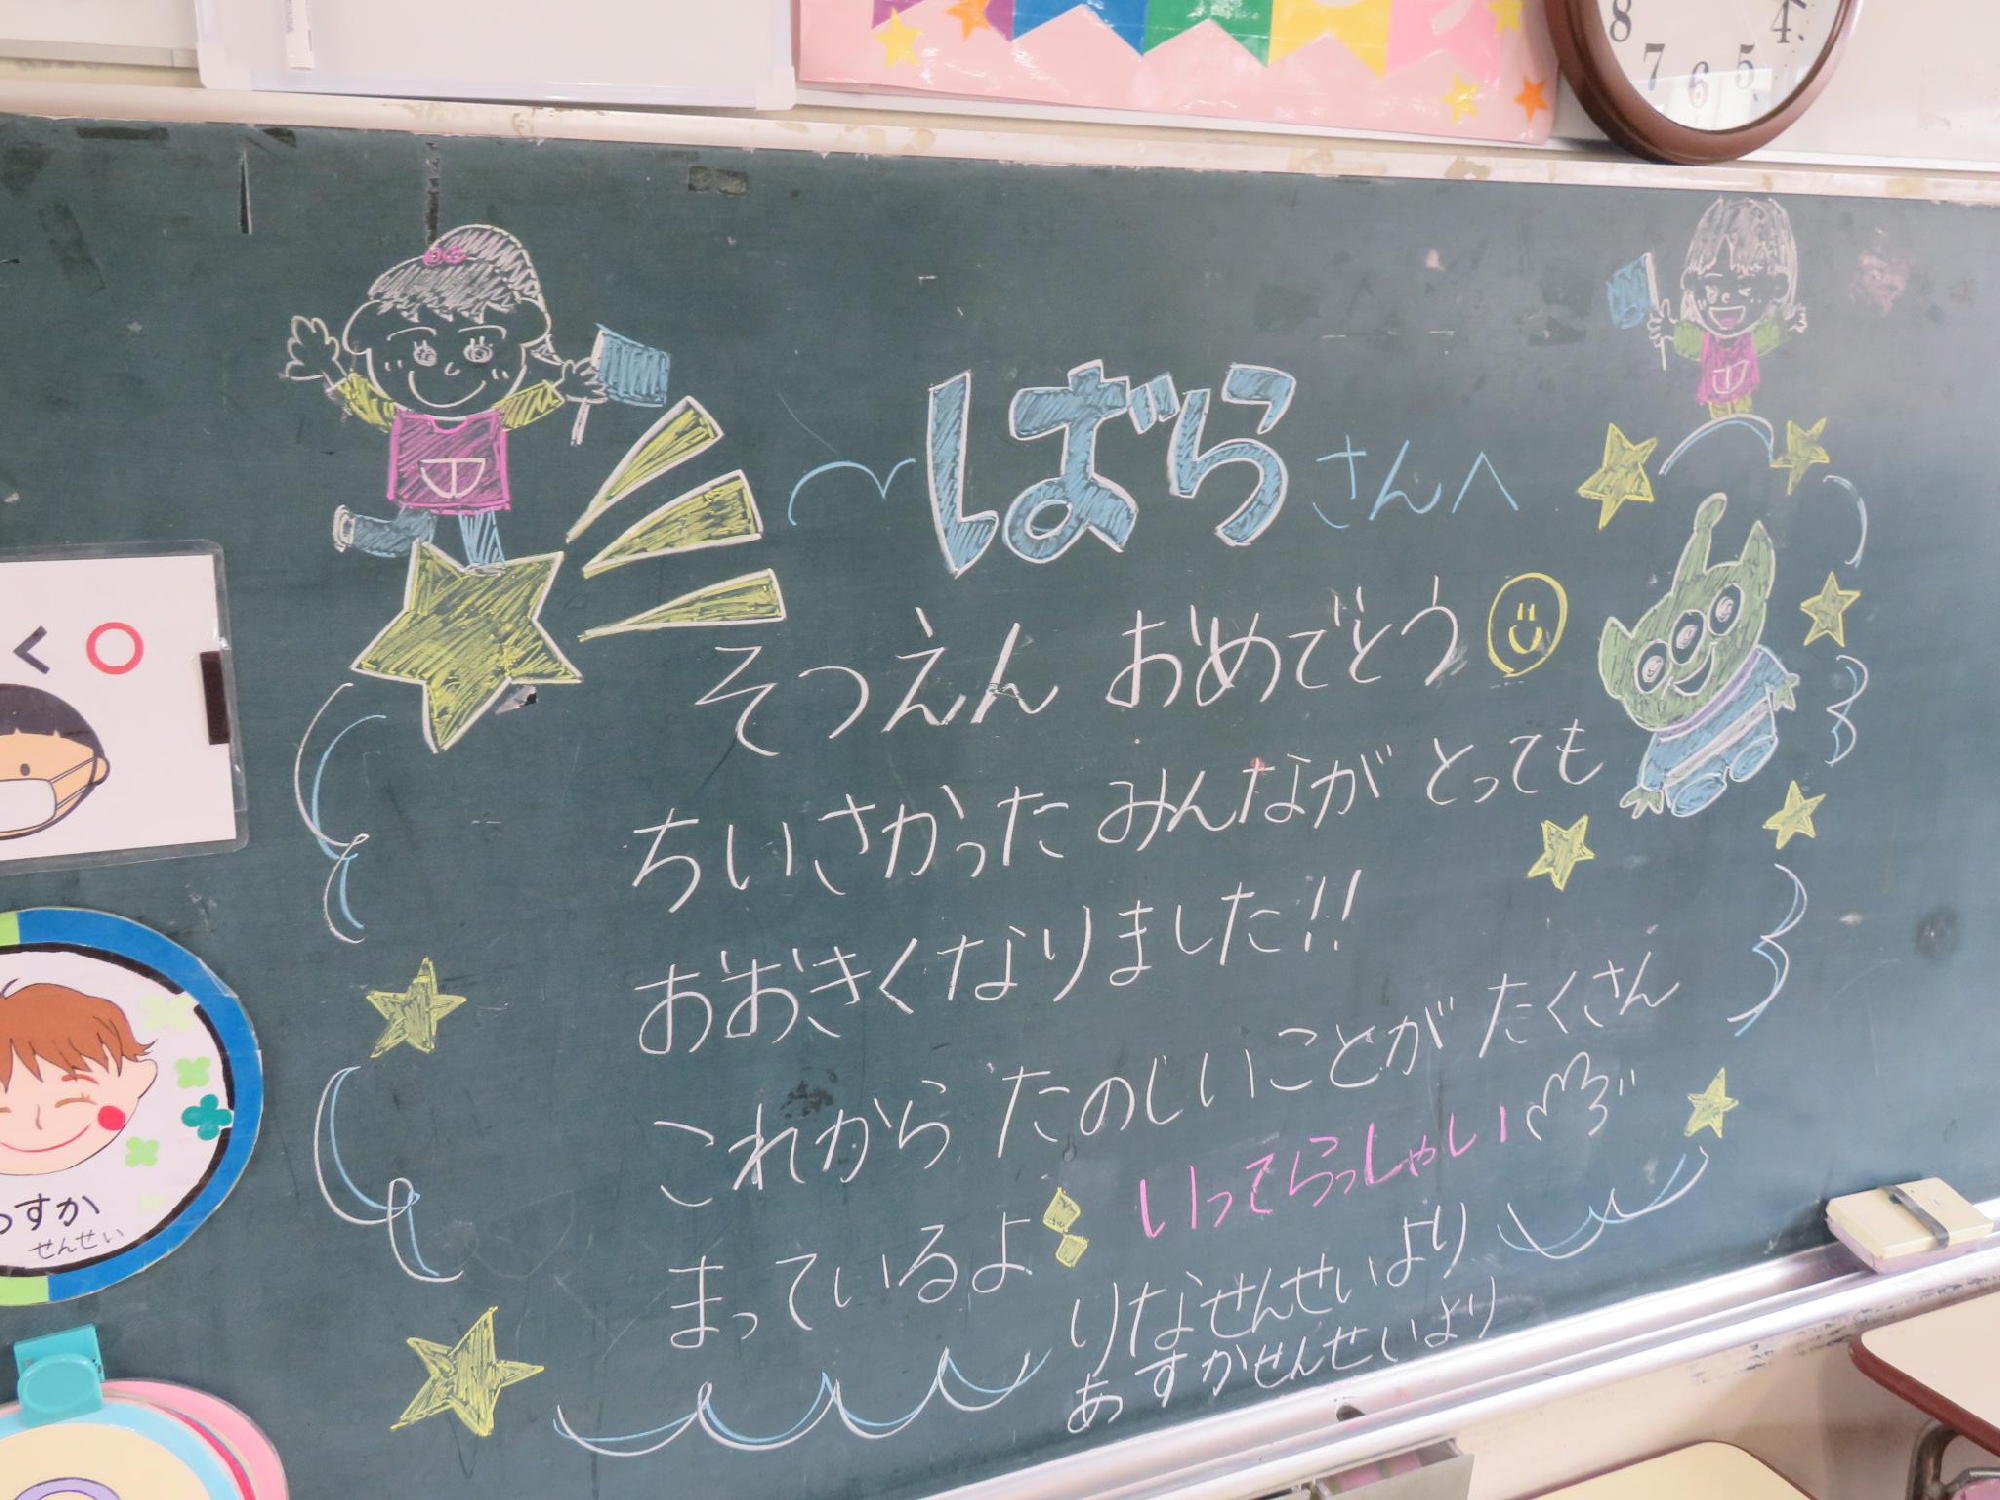 8 7 6 5 4
ばらさんへ
そつえん おめでとう
ちいさかった みんなが とっても
おおきくなりました!!
これから たのしいことが たくさん
まっているよ
いってらっしゃい
りなせんせいより
あすかせんせいより
く
すか
せんせい